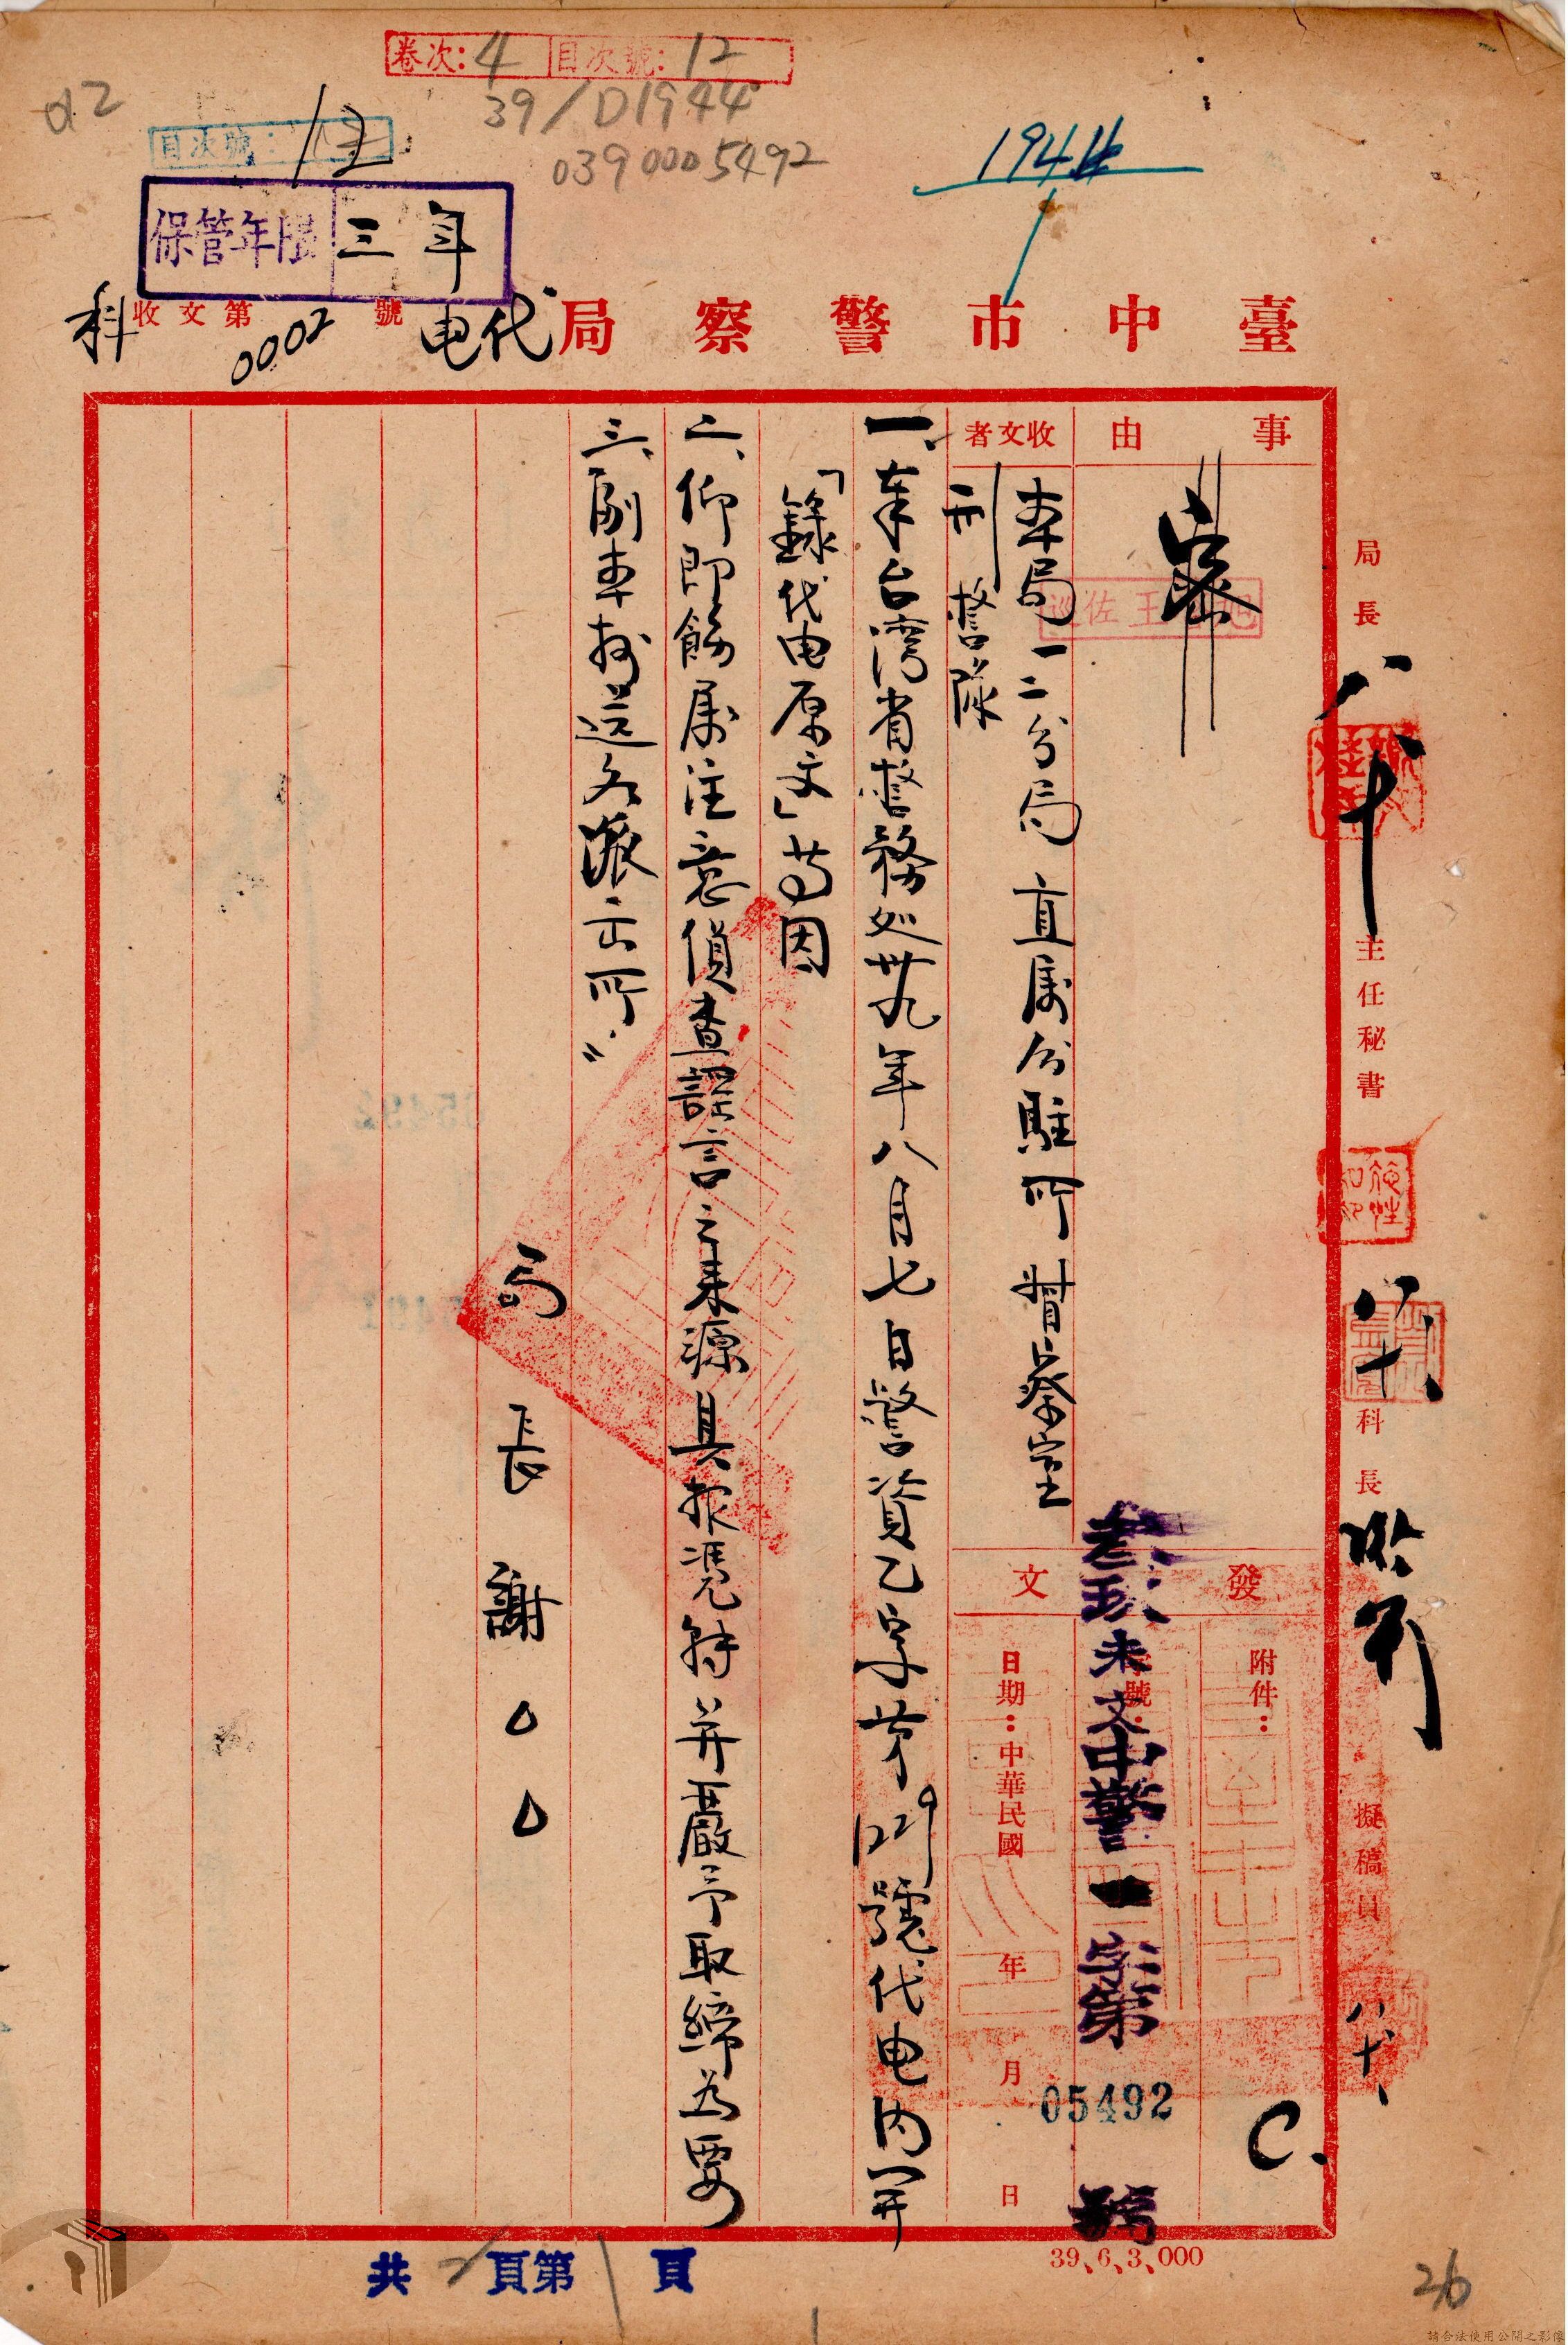 卷次：4 目次號：12
39/D1944
0390005492
目次號：12
1944
保管年限 三年
臺中市警察局代电
收文第0002號
科
事由
密
收文者
本局一二分局 直属分駐所 督察室
刑警隊
發文
附件：
字號：
叁玖未文中警一字第05492號
日期：中華民國 年 月 日
一、奉台湾省警務処卅九年八月七日警資乙字第1229號代电内開
「錄代电原文」等因
二、仰即飭属注意偵查謠言之来源具报凭转并嚴予取締为要
三、副本抄送各派出所〃
局長謝〇〇
局長
八十
主任秘書
八十
科長
擬稿員
八十
C.
39.6.3,000
共 2 頁第 1 頁
26
請合法使用公開之影像